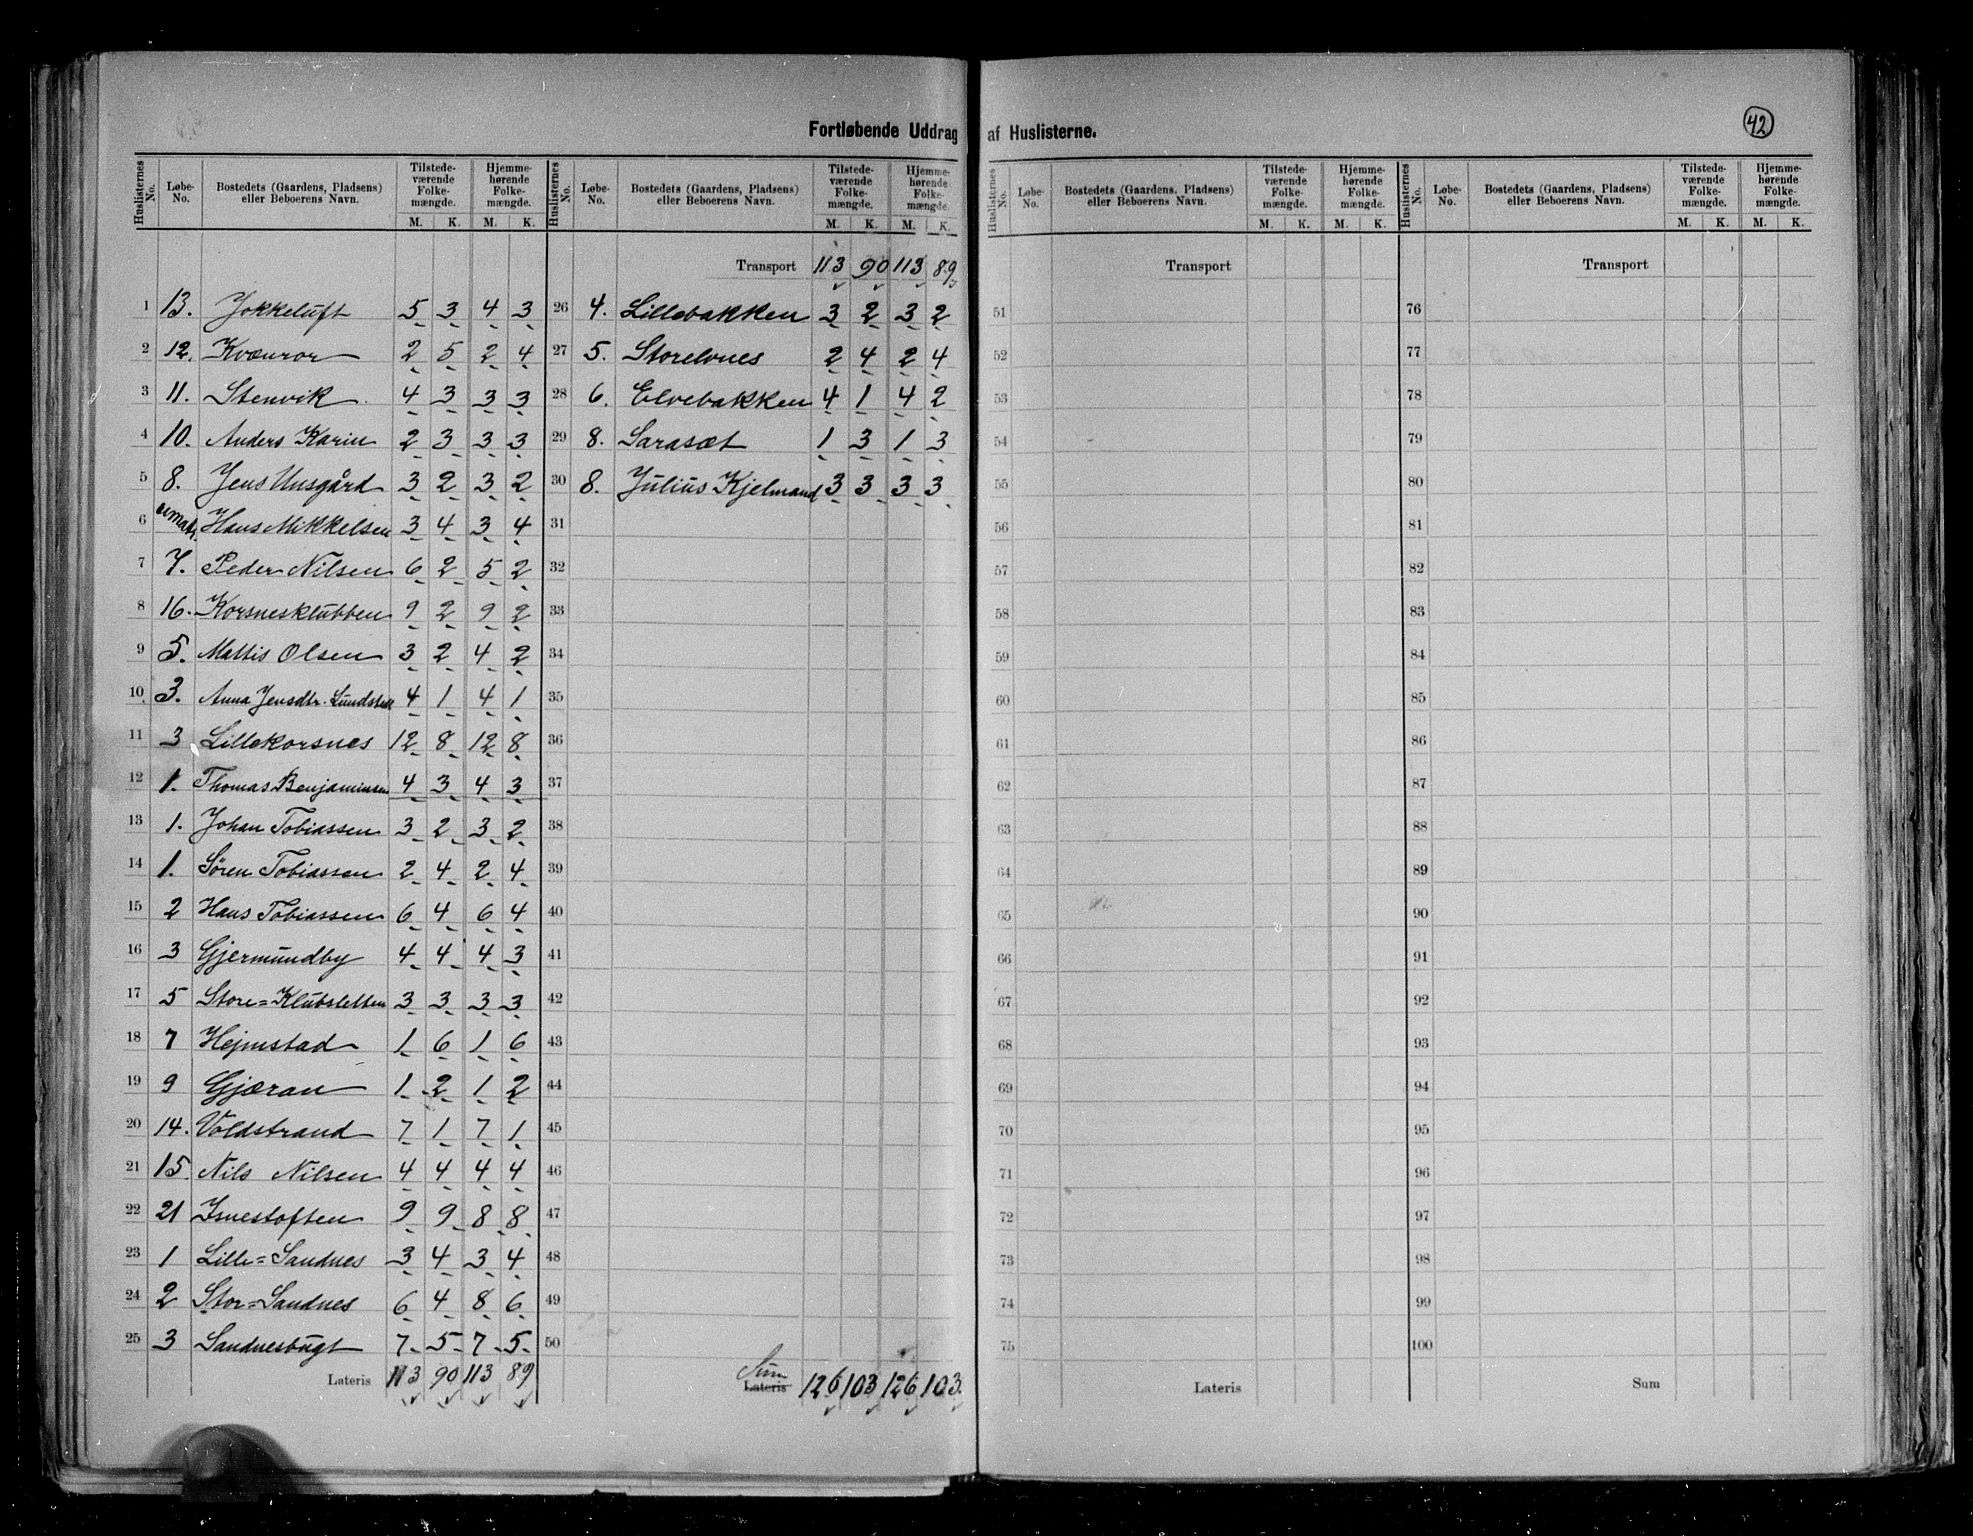 Fortløbende Uddrag af Huslisterne.
42
Huslisternes No. Løbe-No. Bostedets (Gaardens, Pladsens) eller Beboerens Navn. Tilstedeværende Folkemængde. M. K. Hjemmehørende Folkemængde. M. K.
1 13. Jokkeluft 5 3 4 3
2 12. Kvænror 2 5 2 4
3 11. Stenvik 4 3 3 3
4 10. Anders Karin 2 3 3 3
5 8. Jens Unsgård 3 2 3 2
6 Hans Mikkelsen 3 4 3 4
7 7. Peder Nilsen 6 2 5 2
8 16. Korsnesklubben 9 2 9 2
9 5. Mattis Olsen 3 2 4 2
10 3. Anna Jensdtr. 4 1 4 1
11 3 Lillekorsnes 12 8 12 8
12 1. Thomas Benjaminsen 4 3 4 3
13 1. Johan Tobiassen 3 2 3 2
14 1. Sören Tobiassen 2 4 2 4
15 2 Hans Tobiassen 6 4 6 4
16 3 Gjermundby 4 4 4 3
17 5 Store=Klubsletten 3 3 3 3
18 7 Hejmstad 1 6 1 6
19 9 Gjæran 1 2 1 2
20 14. Voldstrand 7 1 7 1
21 15. Nils Nilsen 4 4 4 4
22 21 Isnestoften 9 9 8 8
23 1 Lille=Sandnes 3 4 3 4
24 2 Stor=Sandnes 6 4 8 6
25 3 Sandnesbugt 7 5 7 5
Lateris 113 90 113 89
Huslisternes No. Løbe-No. Bostedets (Gaardens, Pladsens) eller Beboerens Navn. Tilstedeværende Folkemængde. M. K. Hjemmehørende Folkemængde. M. K.
Transport 113 90 113 89
26 4. Lillebakken 3 2 3 2
27 5. Storelvnes 2 4 2 4
28 6. Elvebakken 4 1 4 2
29 8. Sarasæt 1 3 1 3
30 8. Julius Kjelmand 3 3 3 3
31
32
33
34
35
36
37
38
39
40
41
42
43
44
45
46
47
48
49
50
Sum
Lateris 126 103 126 103
Huslisternes No. Løbe-No. Bostedets (Gaardens, Pladsens) eller Beboerens Navn. Tilstedeværende Folkemængde. M. K. Hjemmehørende Folkemængde. M. K.
Transport
51
52
53
54
55
56
57
58
59
60
61
62
63
64
65
66
67
68
69
70
71
72
73
74
75
Lateris
Huslisternes No. Løbe-No. Bostedets (Gaardens, Pladsens) eller Beboerens Navn. Tilstedeværende Folkemængde. M. K. Hjemmehørende Folkemængde. M. K.
Transport
76
77
78
79
80
81
82
83
84
85
86
87
88
89
90
91
92
93
94
95
96
97
98
99
100
Sum